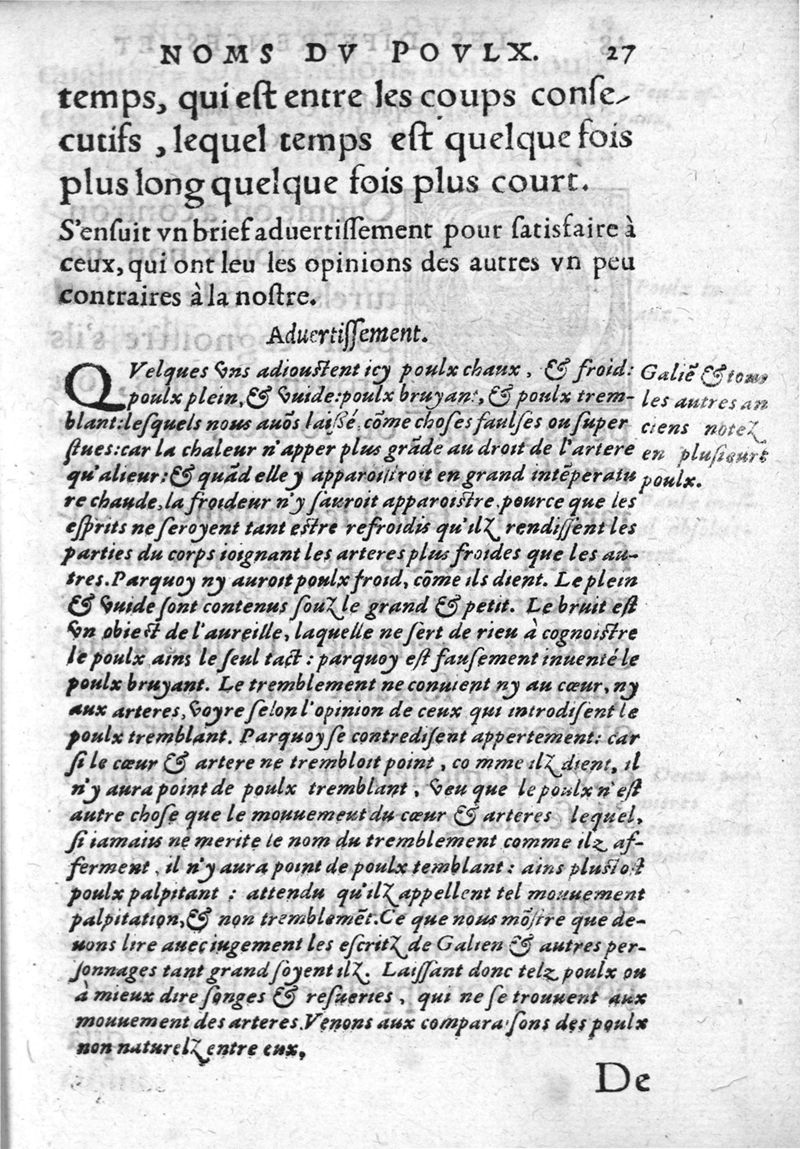 NOMS DV POVLX. 27
temps, qui eſt entre les coups conſe-
cutifs , lequel temps eſt quelque fois
plus long quelque fois plus court.
S'enſuit vn brief aduertiſſement pour ſatisfaire à
ceux, qui ont leu les opinions des autres vn peu
contraires à la noſtre.
Aduertiſſement.
QVelques vns adiouſtent icy poulx chaux , & froid:
poulx plein, & vuide: poulx bruyant, & poulx trem-
blant: leſquels nous auõs laiſſé, cõme choſes faulſes ou ſuper
flues: car la chaleur n'apper plus grãde au droit de l'artere
qu'alieur: & quãd elle y apparoiſtroit en grand intẽperatu
re chaude, la froideur n'y ſauroit apparoiſtre, pource que les
eſprits ne ſeroyent tant eſtre refroidis qu'ilz rendiſſent les
parties du corps ioignant les arteres plus froides que les au-
tres. Parquoy ny auroit poulx froid, cõme ils dient. Le plein
& vuide ſont contenus ſouz le grand & petit. Le bruit eſt
vn obiect de l'aureille, laquelle ne ſert de rieu à cognoiſtre
le poulx ains le ſeul tact : parquoy eſt fauſement inuenté le
poulx bruyant. Le tremblement ne conuient ny au cœur, ny
aux arteres, voyre ſelon l'opinion de ceux qui introdiſent le
poulx tremblant. Parquoy ſe contrediſent appertement: car
ſi le cœur & artere ne trembloit point , co mme ilz dient, il
n'y aura point de poulx tremblant , veu que le poulx n'eſt
autre choſe que le mouuement du cœur & arteres lequel,
ſi iamais ne merite le nom du tremblement comme ilz af-
ferment , il n'y aura point de poulx temblant : ains pluſtoſt
poulx palpitant : attendu qu'ilz appellent tel mouuement
palpitation, & non tremblemẽt. Ce que nous mõſtre que de-
uons lire auec iugement les eſcritz de Galien & autres per-
ſonnages tant grand ſoyent ilz. Laiſſant donc telz poulx ou
à mieux dire ſonges & reſueries , qui ne ſe trouuent aux
mouuement des arteres. Venons aux comparaiſons des poulx
non naturelz entre eux,
Galiẽ & tous
les autres an
ciens notez
en pluſieurs
poulx.
De